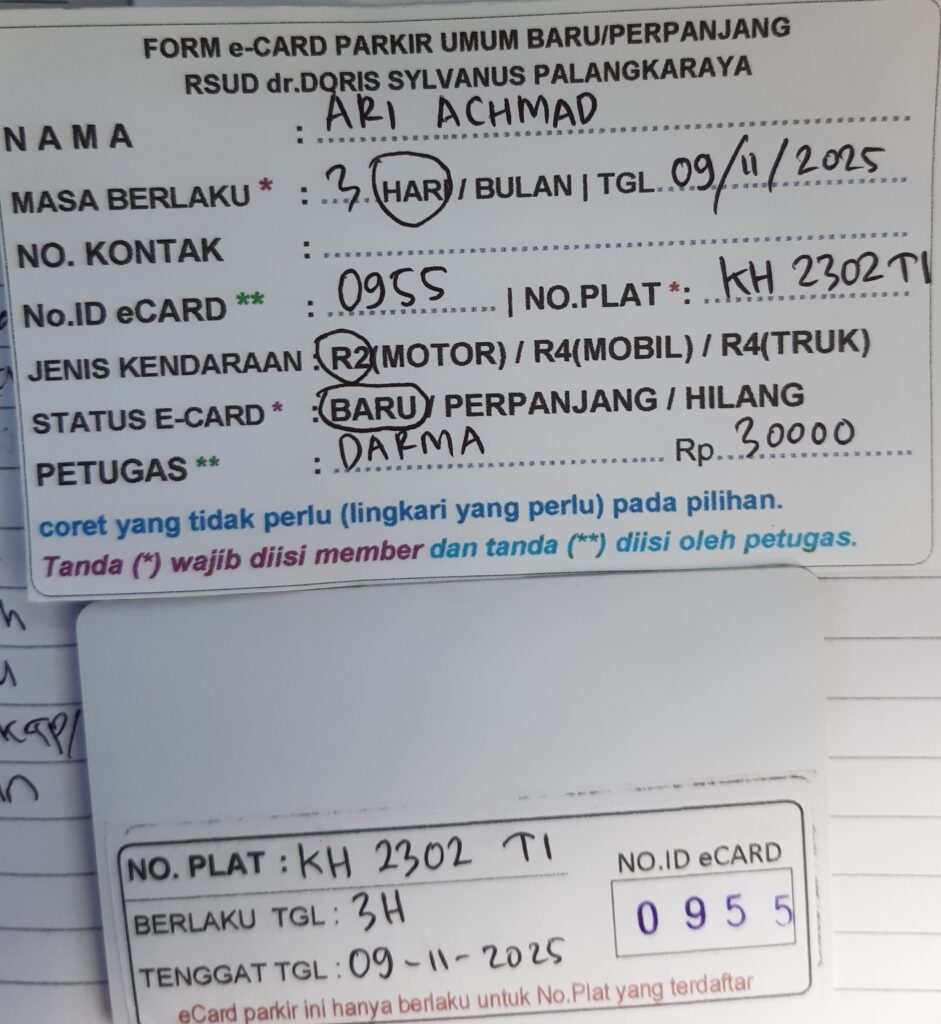 FORM e-CARD PARKIR UMUM BARU/PERPANJANG
RSUD dr.DORIS SYLVANUS PALANGKARAYA
NAMA : ARI ACHMAD
MASA BERLAKU * : 3 HARI / BULAN | TGL 09/11/2025
NO. KONTAK :
No.ID eCARD ** : 0955 | NO.PLAT *: KH 2302 TI
JENIS KENDARAAN : R2(MOTOR) / R4(MOBIL) / R4(TRUK)
STATUS E-CARD * : BARU / PERPANJANG / HILANG
PETUGAS ** : DARMA Rp. 30000
coret yang tidak perlu (lingkari yang perlu) pada pilihan.
Tanda (*) wajib diisi member dan tanda (**) diisi oleh petugas.
NO. PLAT : KH 2302 TI
NO.ID eCARD
BERLAKU TGL : 3H
0955
TENGGAT TGL : 09-11-2025
eCard parkir ini hanya berlaku untuk No.Plat yang terdaftar